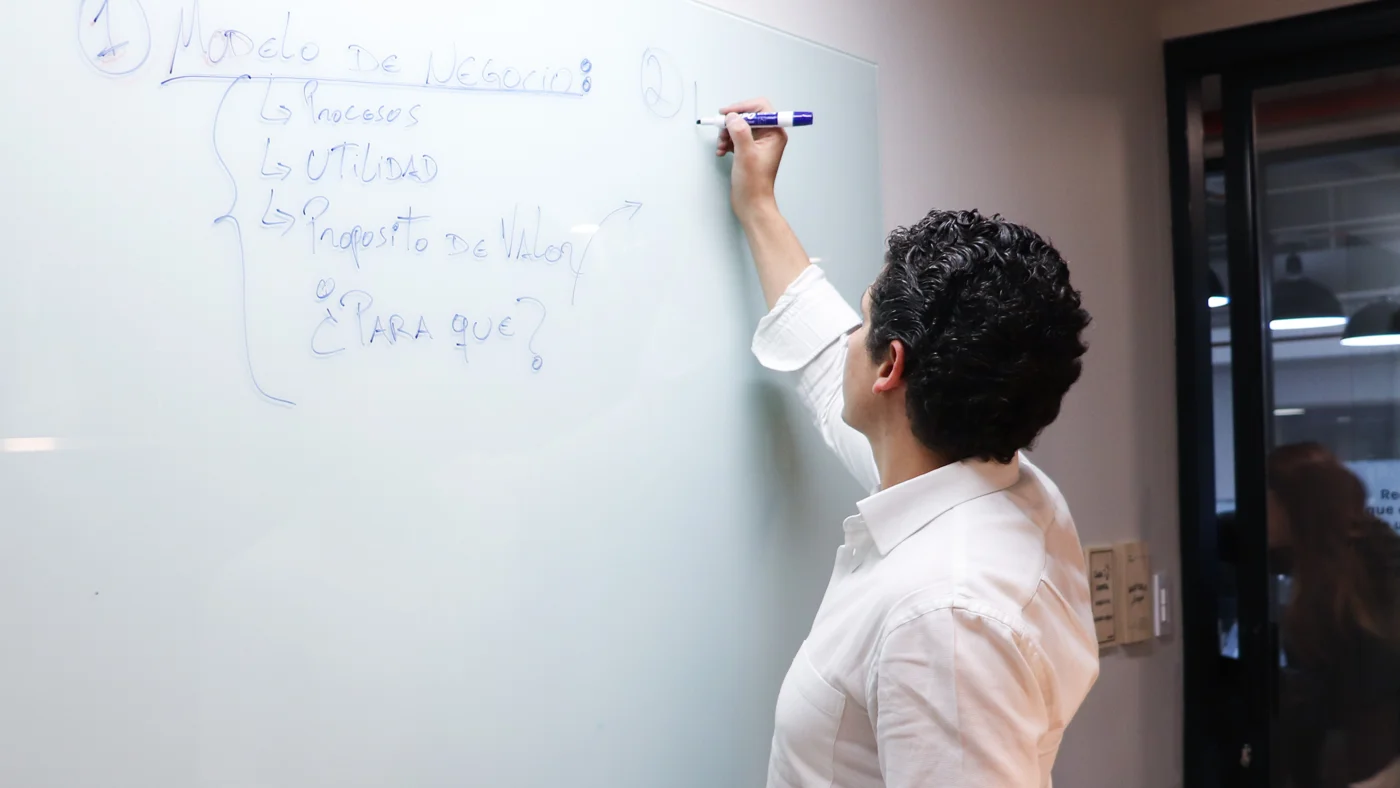 1 MODELO DE NEGOCIO:
↳ Procesos
↳ UTILIDAD
↳ Proposito DE Valor
¿PARA QUE?
2
Re
que